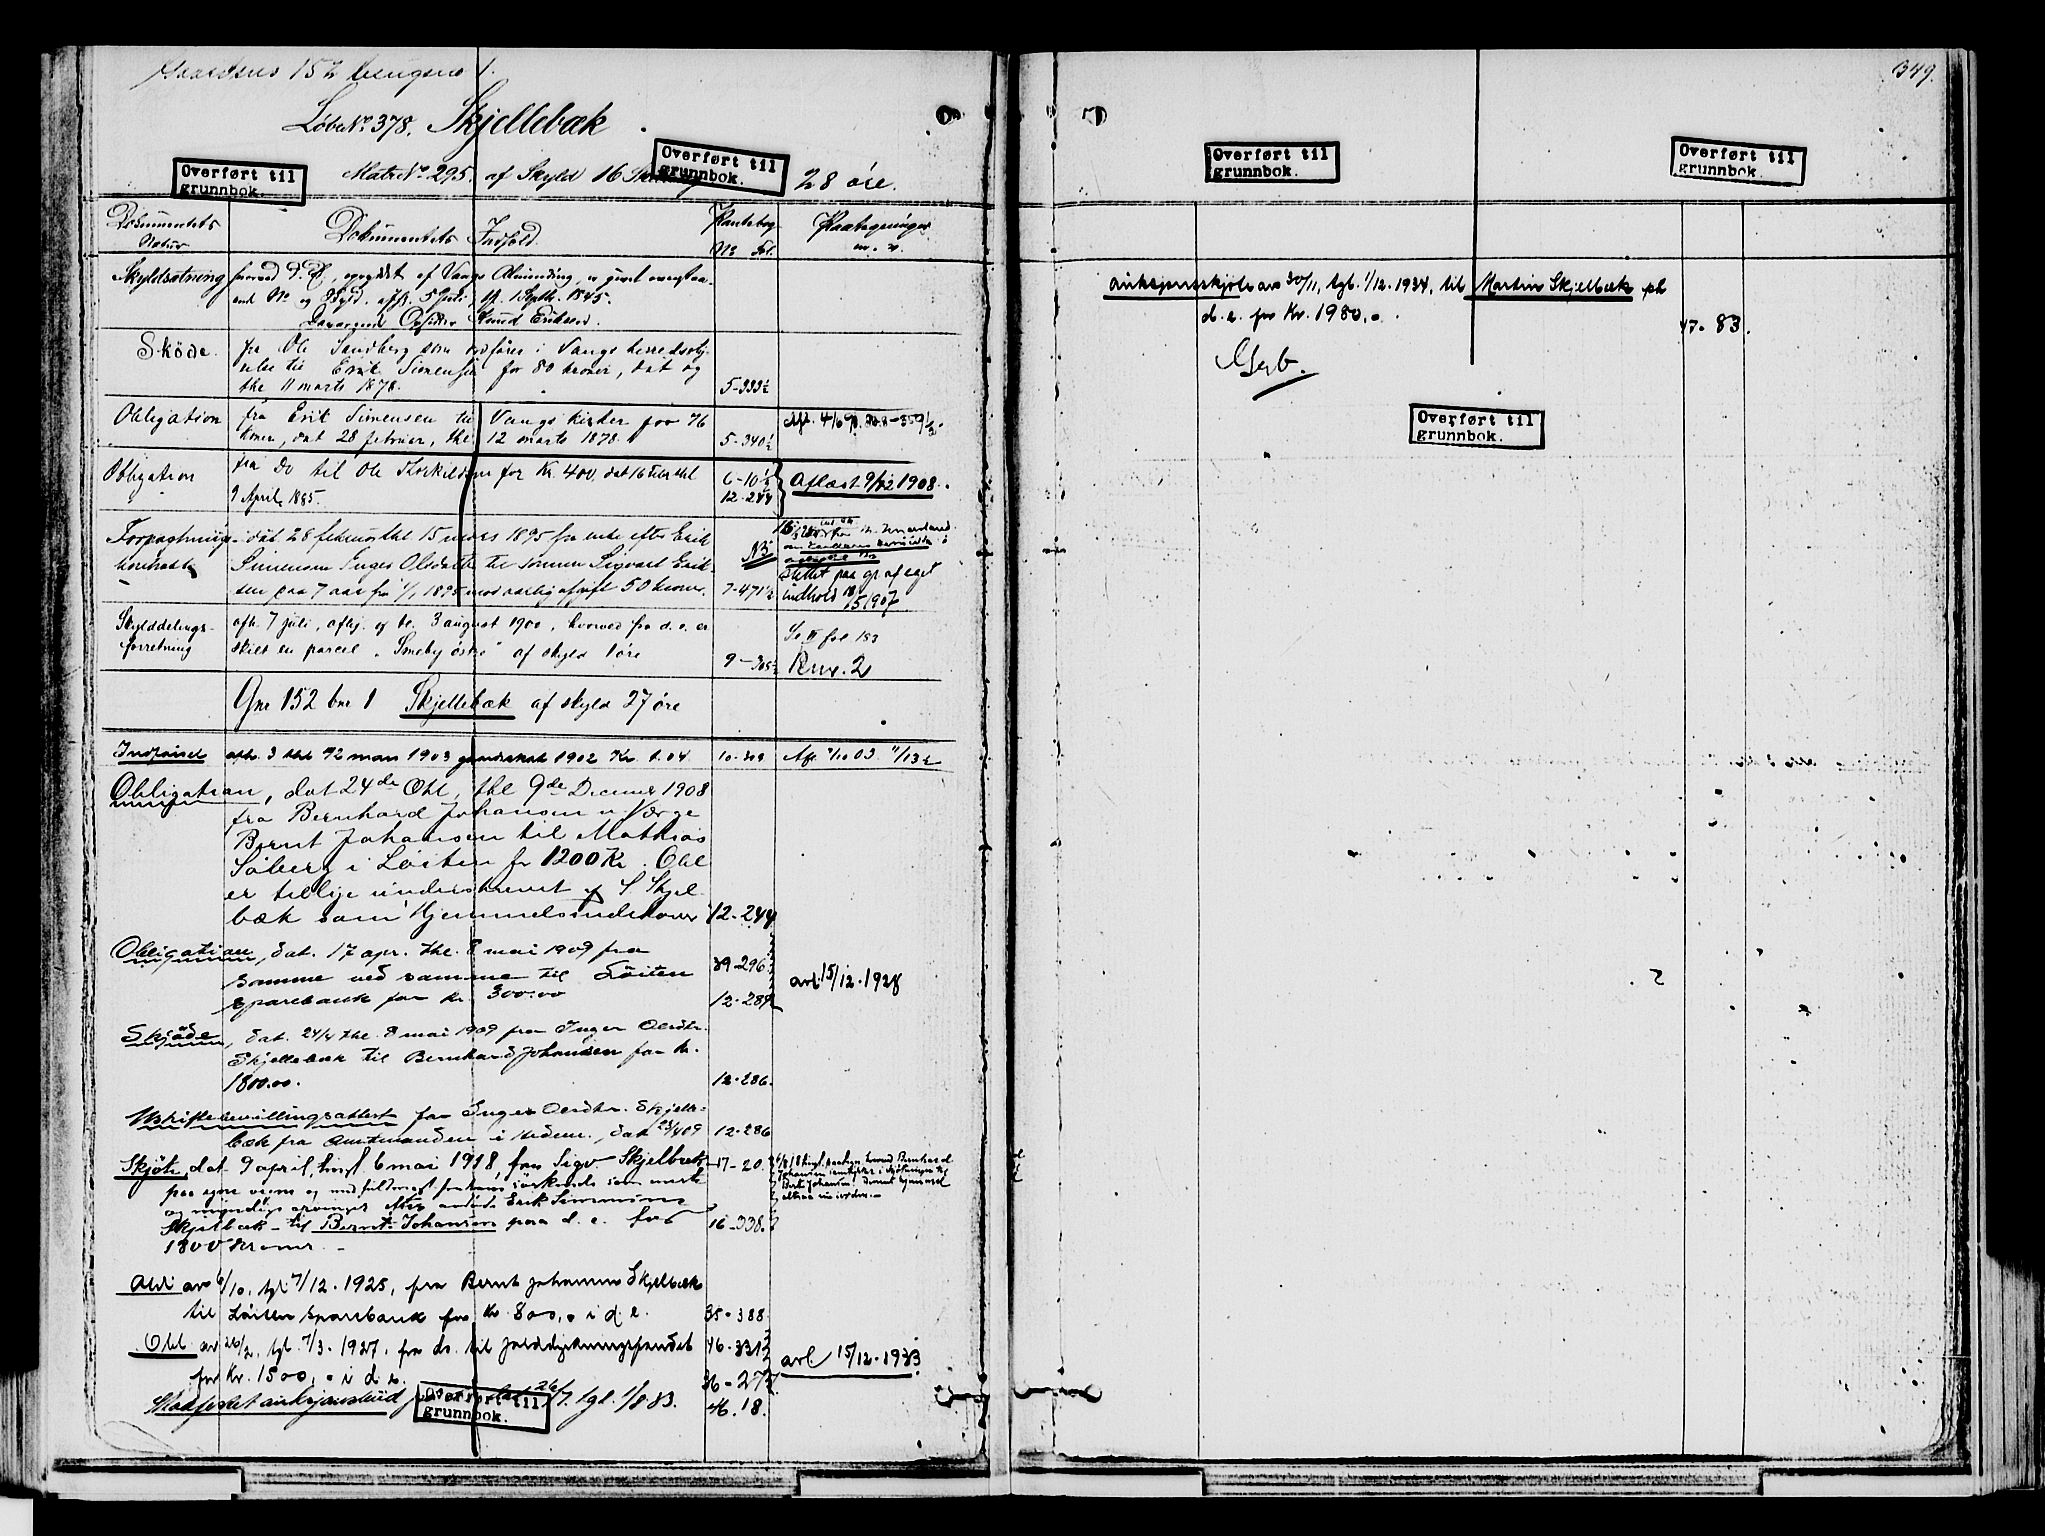 Gaardsno 152 brugsno 1.
349.
Løbe No. 378. Skjellebæk
Overført til
grunnbok.
Matr No. 295. af Skyld 16
Overført til
grunnbok.
28 öre.
Dokumentets
Natur
Dokumentets Indhold.
Pantebog
No Fol.
Paategninger
m. v.
Skyldsætning
hvorved d. E., af Vangs Almending, er givet ovenstaa-
ende No og Skyld. afh. 5 Juli tl. 1 Septbr. 1845.
Opsidder Knud Eriksen.
Sköde.
fra Ole Sandberg som ordfører i Vangs herredssty-
relse til Erik Simensen for 80 kroner, dat og
thl 11 marts 1878.
5-333½
Obligation
fra Erik Simensen til Vangs kirker for 76
kroner, dat 28 februar, thl 12 marts 1878.
5-340½
Obligation
fra Do til Ole Thorkildsen for Kr. 400, dat 16 Febr thl
9 April 1885.
6-10½
12-244
Aflæst 9/12 1908.
Forpagtnings-
kontrakt
dat 28 februar thl 15 mars 1895 fra enke efter Erik
Simensen Inger Olsdatter til sønnen Sigvart Erik-
sen paa 7 aar fra 1/1 1895 mod aarlig afgift 50 kroner.
NB
7-471½
slettet paa gr. af eget
indhold 18/5 1907
Skylddelings-
forretning
afh. 7 juli, afhj. og tl. 3 august 1900, hvorved fra d. e. er
skilt en parcel "Smeby östre" af skyld 1 öre
9-365½
Se II fol 183
Bnr. 2
Gnr 152 bnr 1 Skjellebæk af skyld 27 öre
afh. 3 thl 12 mars 1903 1902 Kr. 1.04
10-309
Obligation, dat 24de Okt, thl 9de Decemer 1908
fra Bernhard Johansen m Værge
Bernt Johansen til Mathias
Söberg i Löiten for 1200 Kr. Obl
er tillige underskrevet af S. Skjel-
bæk som Hjemmelsindehaver
12-244
Obligation, dat. 17 apr. thl. 8 mai 1909 fra
samme ved samme til Löiten
sparebank for kr 300.00
39-296
12-289
avl 15/12-1928
Skjöde, dat. 24/4 thl. 8 mai 1909 fra Inger Olsdtr.
Skjellebæk til Bernhard Johansen for kr.
1800.00.
12-286.
Uskiftebevillingsattest for Inger Olsdtr. Skjelle-
bæk fra amtmanden i Hedem., dat 23/4 09
12-286
Skjöte, dat 9 april, tingl. 6 mai 1918, fra Sigv. Skjelbæk
paa egne vegne og
og myndige arvinger efter Erik Simensen
Skjelbæk - til Bernt Johansen paa d. e. for
1800 kroner. -
17-20.
16-338.
Obl av 6/10, tgl 7/12-1925, fra Bernt Johansen Skjelbæk
til Löiten sparebank for Kr. 800,- i d. e.
35-388
Obl av 26/2, tgl 7/3-1927, fra ds. til
for Kr. 1500,- i d. e.
46-331
36-273
avl 15/12-1933
Overført til
grunnbok.
26/7. tgl. 1/8 33.
46.18.
Overført til
grunnbok.
Overført til
grunnbok.
Auksjonsskjöte av 30/11, tgl. 1/12-1934, til Martin Skjelbæk på
d. e. for Kr. 1980,-.
47-83.
Overført til
grunnbok.